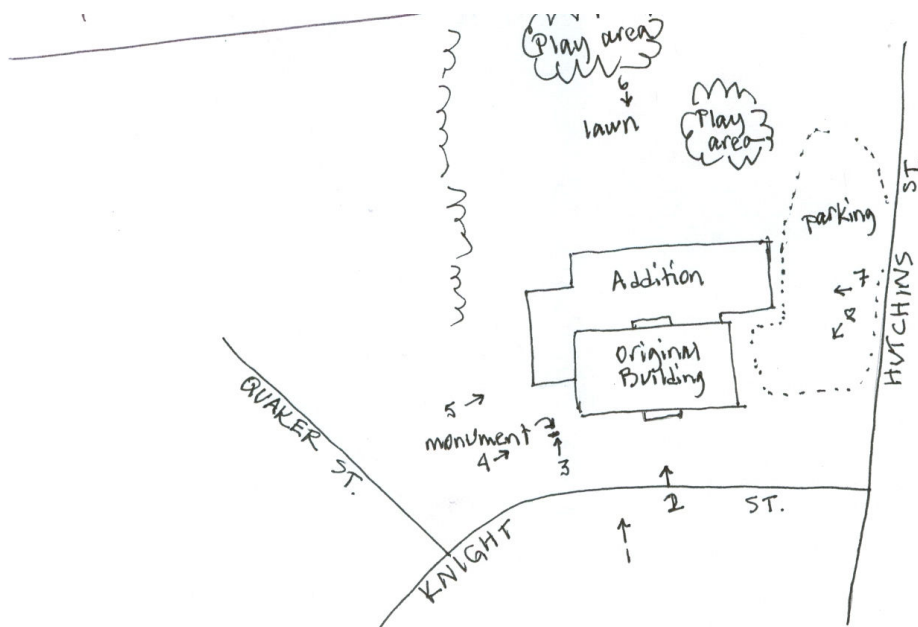 Play area
6
lawn
Play
area
parking
HUTCHINS ST
7
8
Addition
Original
Building
QUAKER ST.
5
monument
4
3
2
ST.
KNIGHT
1